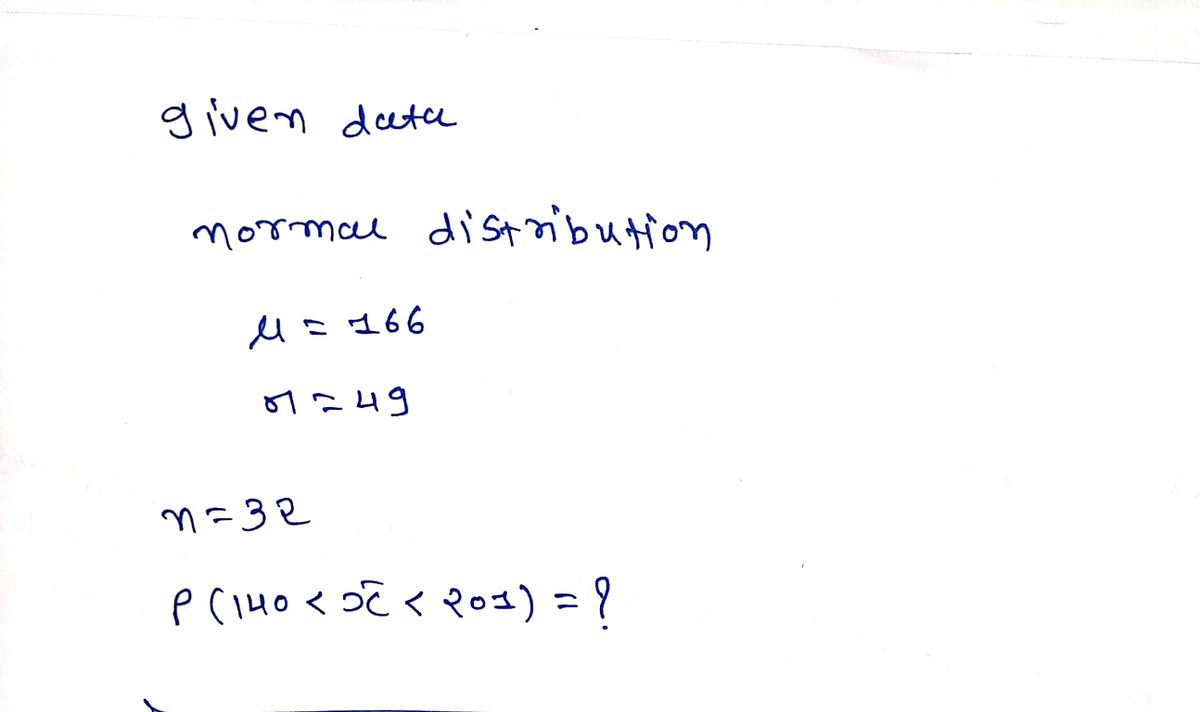 given data
normal distribution
μ = 166
σ = 49
n = 32
P(140 < x̄ < 201) = ?